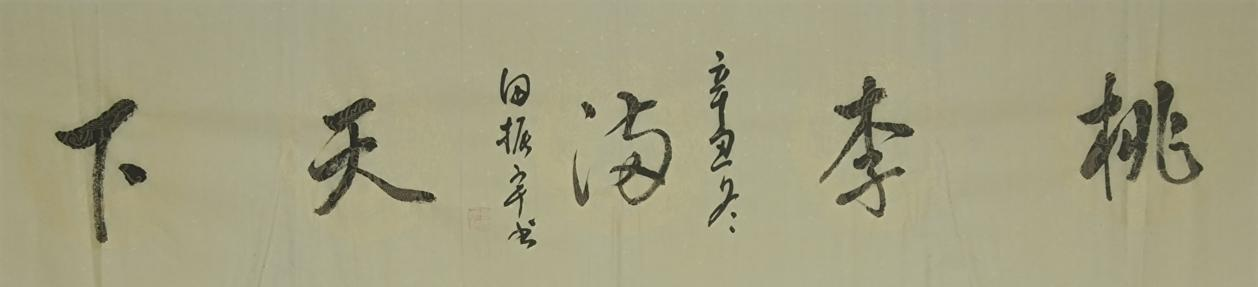 桃李满天下
辛丑冬
田振宇书